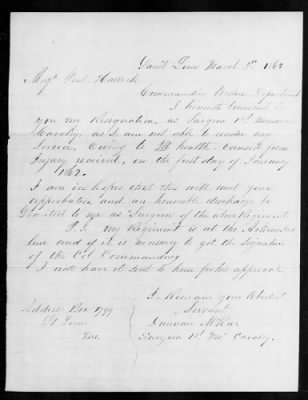 Saint Louis March 3d 1862
Majr Genl Halleck
Commanding Western Department
I herewith tender to
you my Resignation, as Surgeon 1st Missouri
Cavalry, as I am not able to render my
Services, Owing to Ill health Caused from
Injury received, on the first day of January
1862.
I am in hopes that this will meet your
approbation and an honorable discharge be
Granted to me as Surgeon of the above Regiment
P.S. my Regiment is at the Arkansas
line and if it is necessary to get the Signature
of the Col Commanding
I will have it sent to him for his approval
I Remain your Obedient
Servant
Address Box 1799
St Louis
Mo.
Surgeon 1st Mo Cavalry.